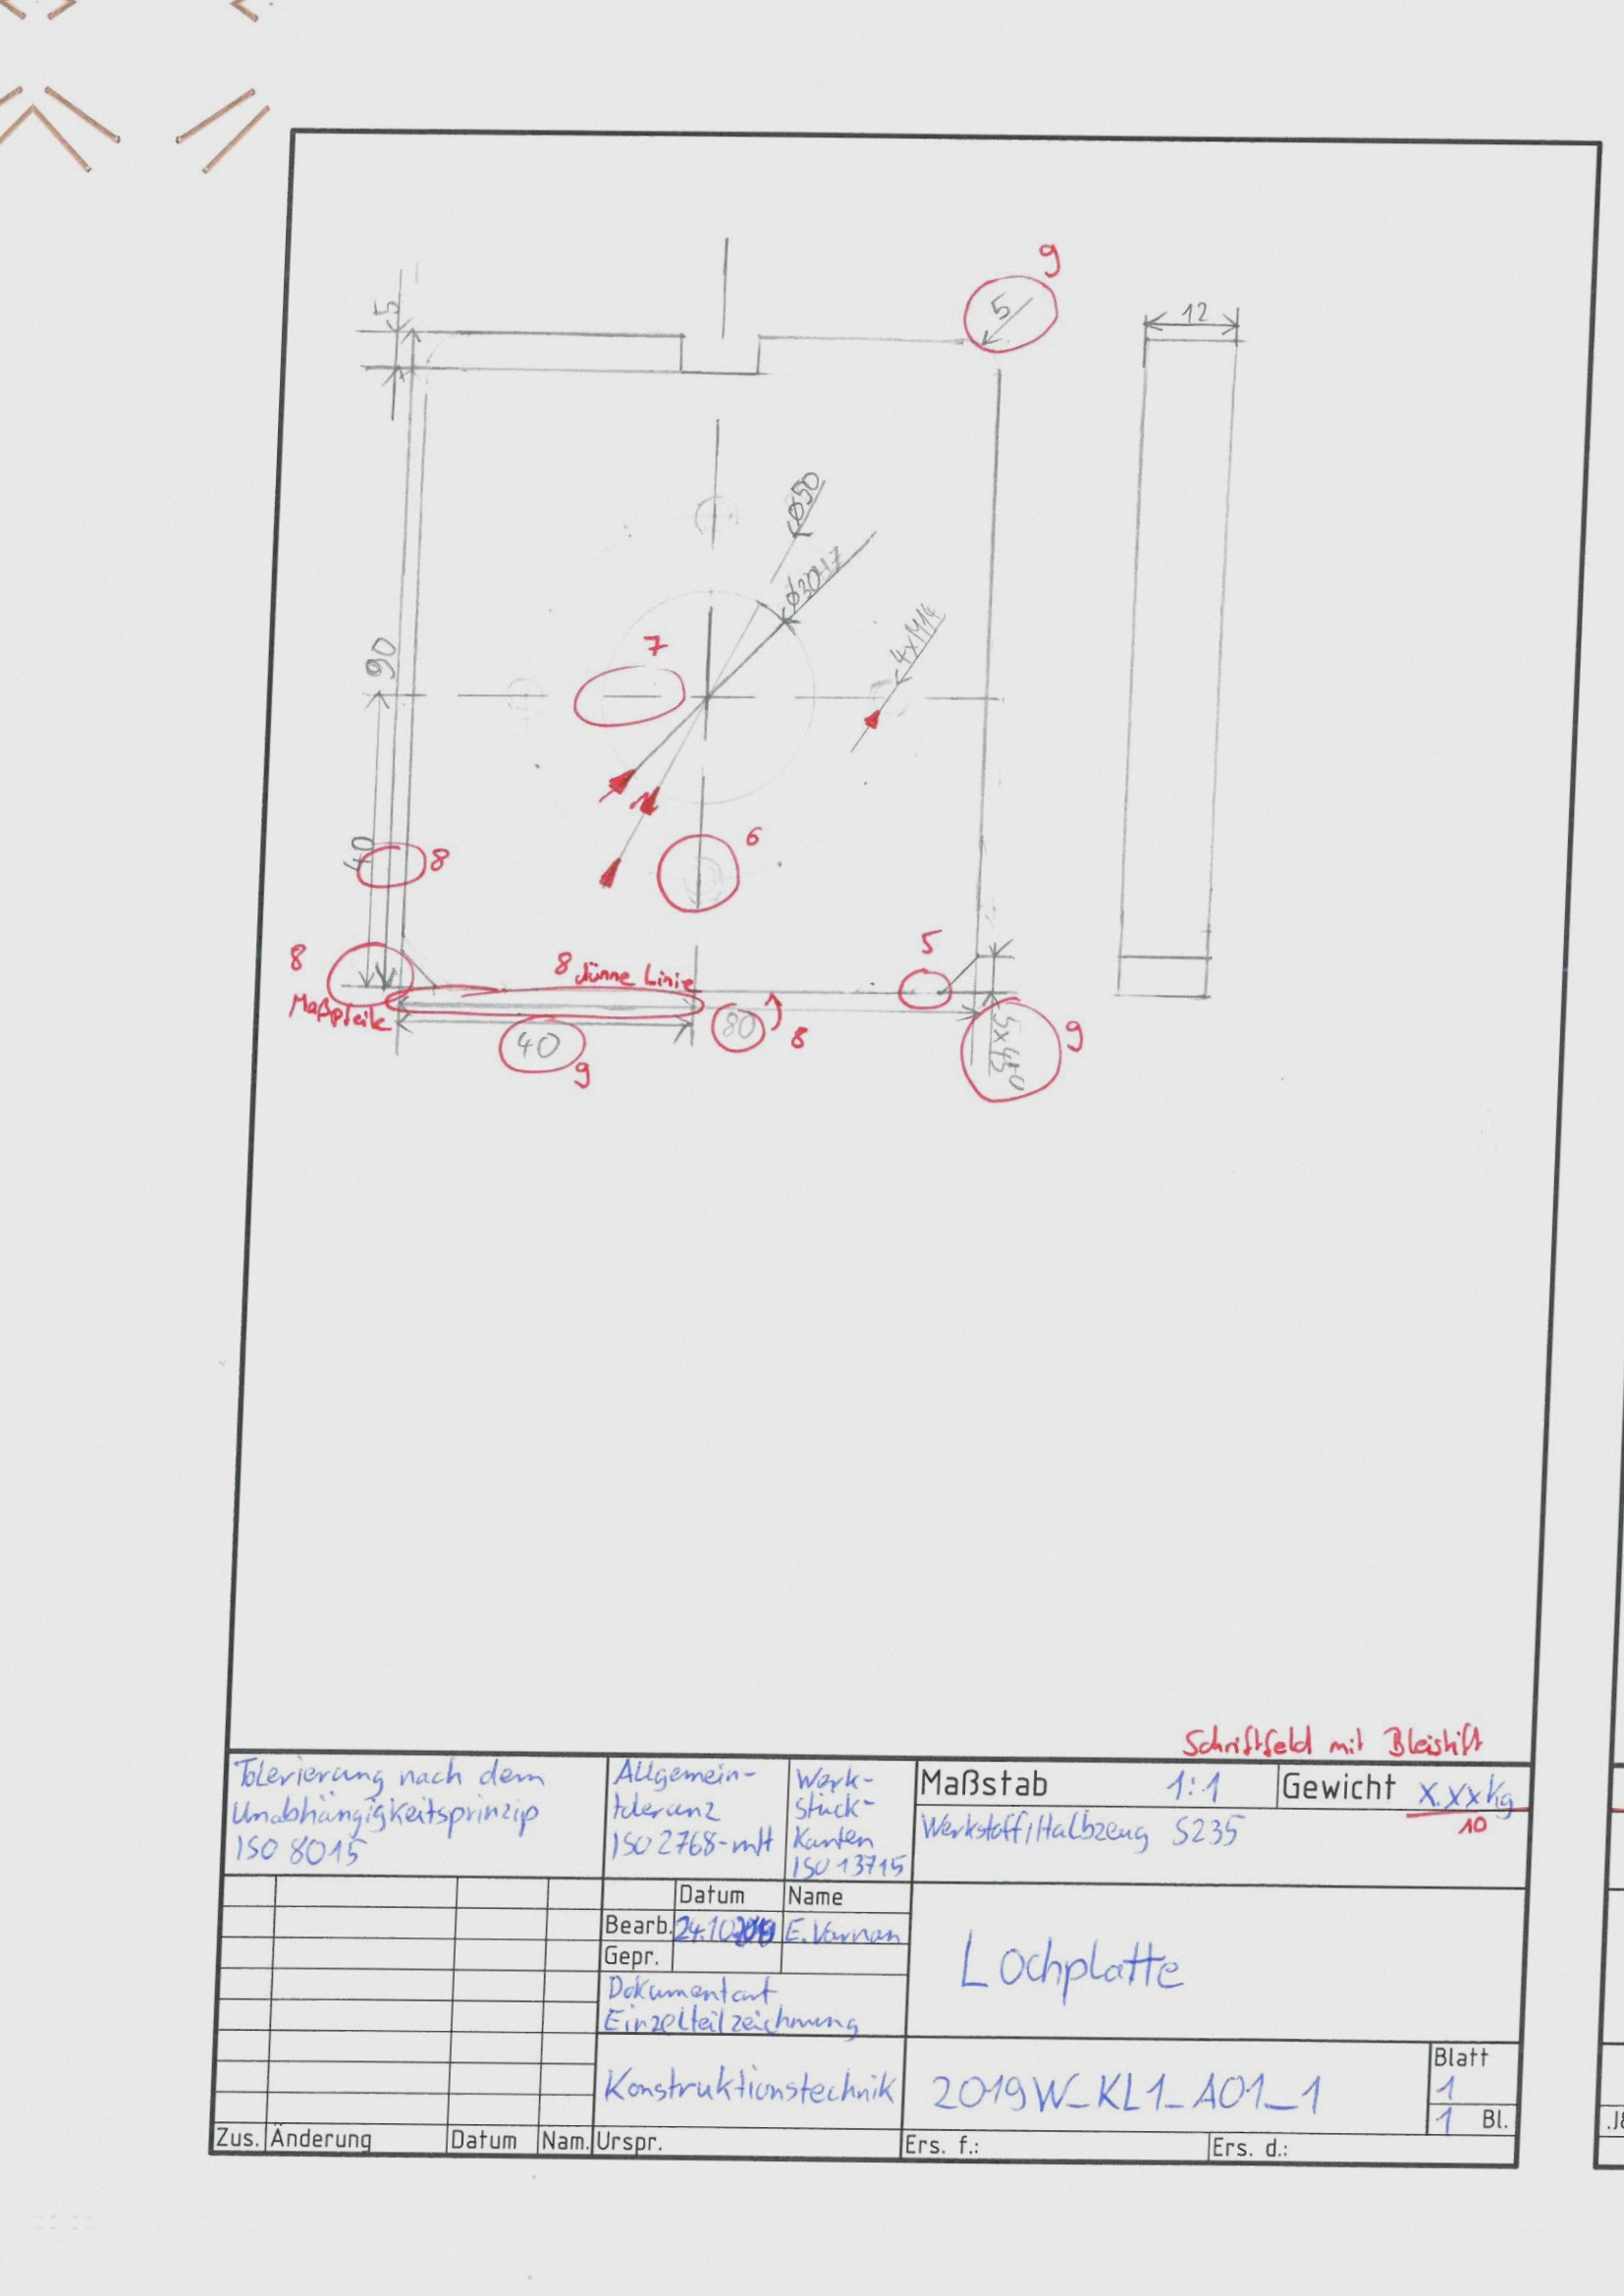 9
5
5
12
Ø50
Ø30H7
4xM14
7
90
6
40
8
5
8
8 dünne Linie
Maßpfeile
80
8
5x45°
9
40
9
Schriftfeld mit Bleistift
Tolerierung nach dem
Unabhängigkeitsprinzip
ISO 8015
Allgemein-
toleranz
ISO 2768-mH
Werk-
stück-
Kanten
ISO 13715
Maßstab 1:1
Gewicht x.xxkg
10
Werkstoff/Halbzeug S235
Datum Name
Bearb. 24.10.2019 E.Varnan
Gepr.
Dokumentart
Einzelteilzeichnung
Lochplatte
Konstruktionstechnik
2019W_KL1_A01_1
Blatt
1
1 Bl.
Zus. Änderung Datum Nam. Urspr. Ers. f.: Ers. d.: